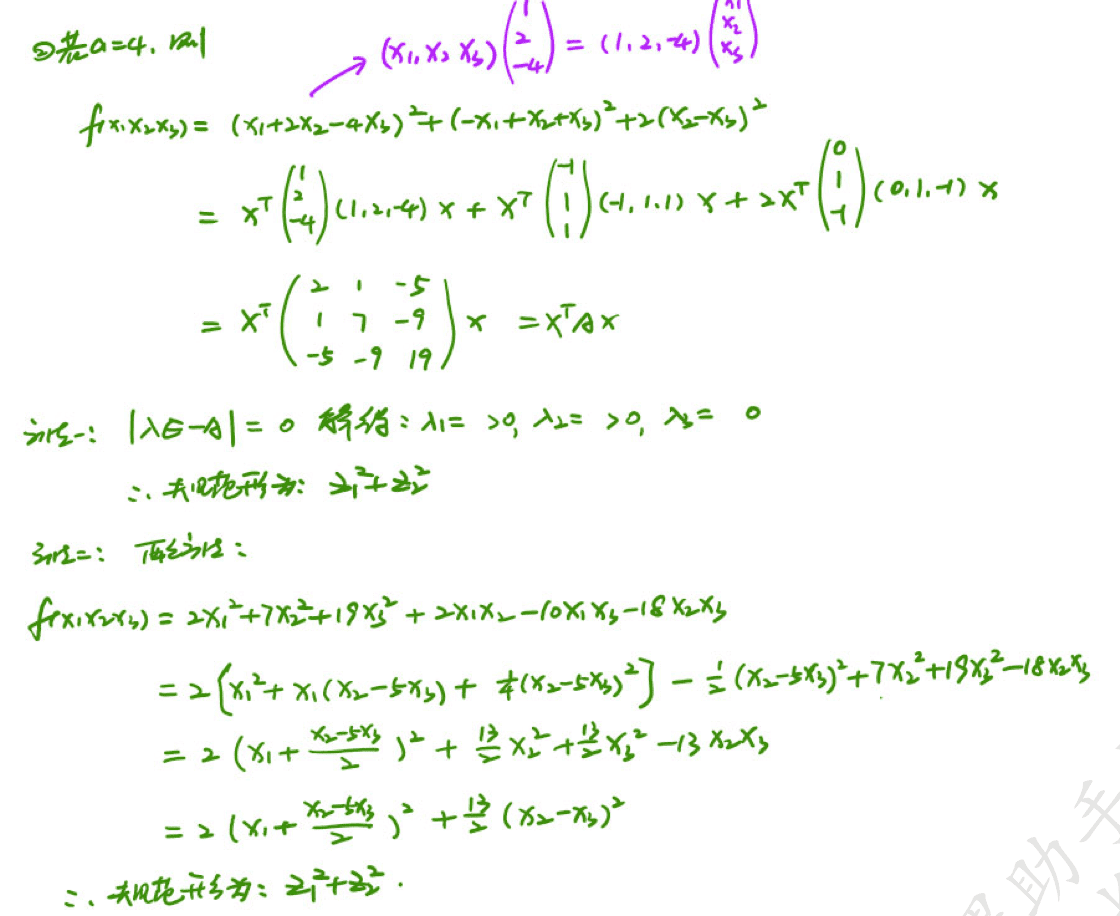 ②若a=4, 则
(x₁, x₂ x₃)(1 2 -4) = (1, 2, -4)(x₁ x₂ x₃)
f(x₁x₂x₃) = (x₁+2x₂-4x₃)²+(-x₁+x₂+x₃)²+2(x₂-x₃)²
= xᵀ(1 2 -4)(1,2,-4) x + xᵀ(-1 1 1)(-1,1,1) x + 2xᵀ(0 1 -1)(0,1,-1) x
= xᵀ(2 1 -5
1 7 -9
-5 -9 19) x = xᵀAx
方法一: |λE-A| = 0 解得: λ₁= >0, λ₂= >0, λ₃= 0
∴ 规范形为: z₁²+z₂²
方法二: 配方法:
f(x₁x₂x₃) = 2x₁²+7x₂²+19x₃²+2x₁x₂-10x₁x₃-18x₂x₃
= 2[x₁²+x₁(x₂-5x₃)+¼(x₂-5x₃)²] - ½(x₂-5x₃)²+7x₂²+19x₃²-18x₂x₃
= 2(x₁+(x₂-5x₃)/2)² + 13/2 x₂²+13/2 x₃² -13x₂x₃
= 2(x₁+(x₂-5x₃)/2)² + 13/2 (x₂-x₃)²
∴ 规范形为: z₁²+z₂².
助手